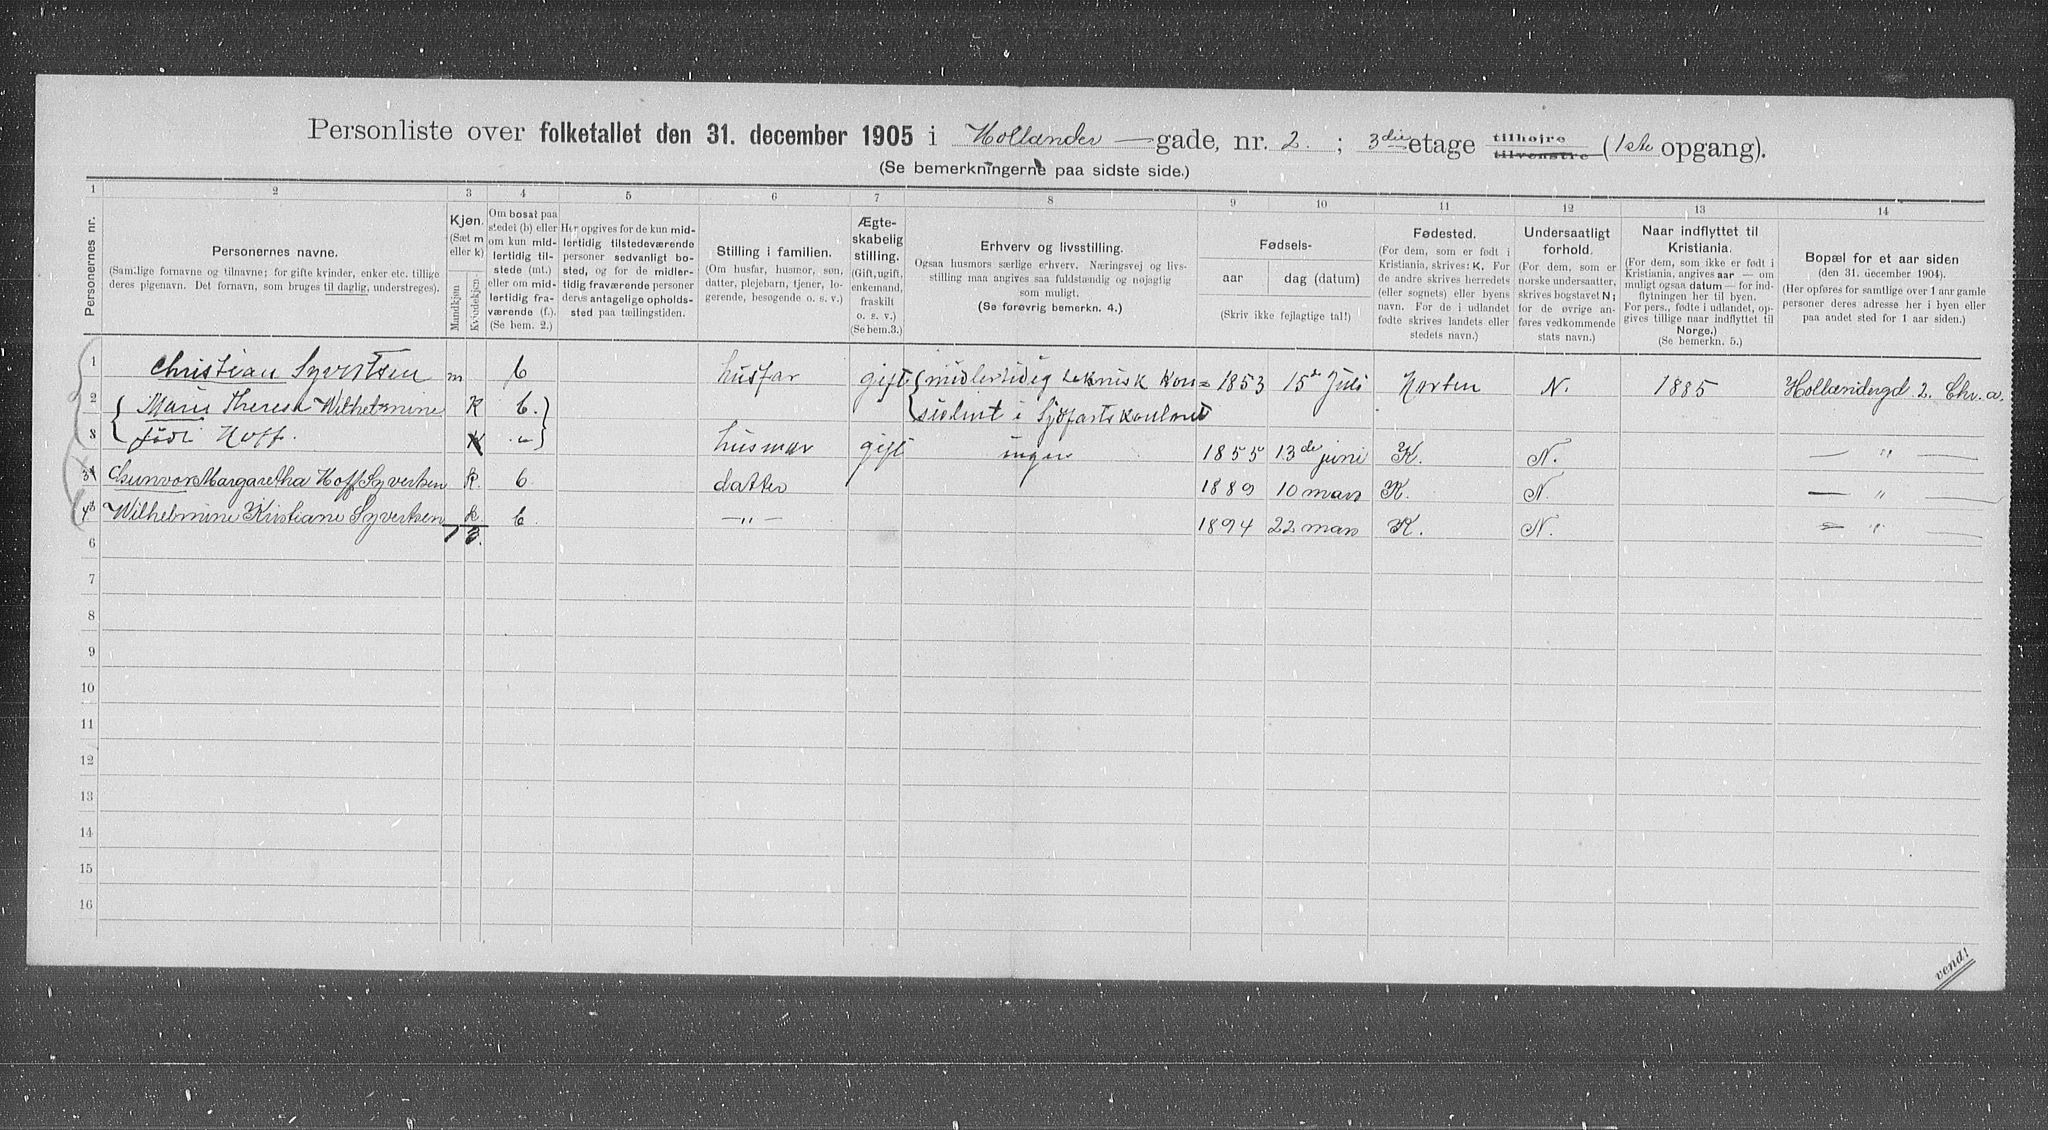 Personliste over folketallet den 31. december 1905 i Hollander — gade, nr. 2. ; 3die etage tilhøjre tilvenstre (1ste opgang).
(Se bemerkningerne paa sidste side.)
1 2 3 4 5 6 7 8 9 10 11 12 13 14
Personernes nr.
Personernes navne.
(Samlige fornavne og tilnavne; for gifte kvinder, enker etc. tillige
deres pigenavn. Det fornavn, som bruges til daglig, understreges).
Kjøn.
(Sæt m
eller k)
Mandkjøn
Kvindekjsn.
Om bosat paa
stedet (b) eller
om kun mid-
lertidig til-
stede (mt.)
eller om mid-
lertidig fra-
værende (f.).
(Se bem. 2.)
Her opgives for de kun mid-
lertidig tilstedeværende
personer sedvanlig bo-
sted, og for de midler-
tidig fraværende personer
deres antagelige opholds-
sted paa tællingstiden.
Stilling i familien.
(Om husfar, husmor, søn,
datter, plejebarn, tjener, lo-
gerende, besøgende o. s. v.)
Ægte-
skabelig
stilling.
(Gift, ugift,
enkemand,
fraskilt
o. s. v.)
(Se bem.3.)
Erhverv og livsstilling.
Ogsaa husmors særlige erhverv. Næringsvej og livs-
stilling maa angives saa fuldstændig og nøjagtig
som muligt.
(Se forøvrig bemerkn. 4.)
Fødsels-
aar
dag (datum)
(Skriv ikke fejlagtige tal!)
Fødested.
(For dem, som er født i
Kristiania, skrives: K. For
de andre skrives herredets
(eller sognets) eller byens
navn. For de i udlandet
fødte skrives landets eller
stedets navn.)
Undersaatligt
forhold.
(For dem, som er
norske undersaatter,
skrives bogstavet N;
for de øvrige an-
føres vedkommende
stats navn.)
Naar indflyttet til
Kristiania.
(For dem, som ikke er født i
Kristiania, angives aar — om
muligt ogsaa datum — for ind-
flytningen her til byen.
For pers., fødte i udlandet, op-
gives tillige naar indflyttet til
Norge.)
(Se bemerkn. 5.)
Bopæl for et aar siden
(den 31. december 1904).
(Her opføres for samtlige over 1 aar gamle
personer deres adresse her i byen eller
paa andet sted for 1 aar siden.)
1 Christian Syvertsen m b husfar gift (midlertidig teknisk kon= 1853 15de Juli Horten N. 1885 Hollændergd. 2. Chr.a.
2 Marie Theresa Wilhelmine K b. sulent i Sjøfartskontoret
3 født Hoff. K „ husmor gift ingen 1855 13de juni K. N. — „ —
3 4 Gunvor Margaretha Hoff Syvertsen k. b. datter 1889 10 mars K. N. — „ —
4 5 Wilhelmine Kristiane Syvertsen k b. — „ — 1894 22 mars K. N. — „ —
6 1 3.
7
8
9
10
11
12
13
14
15
16
vend!